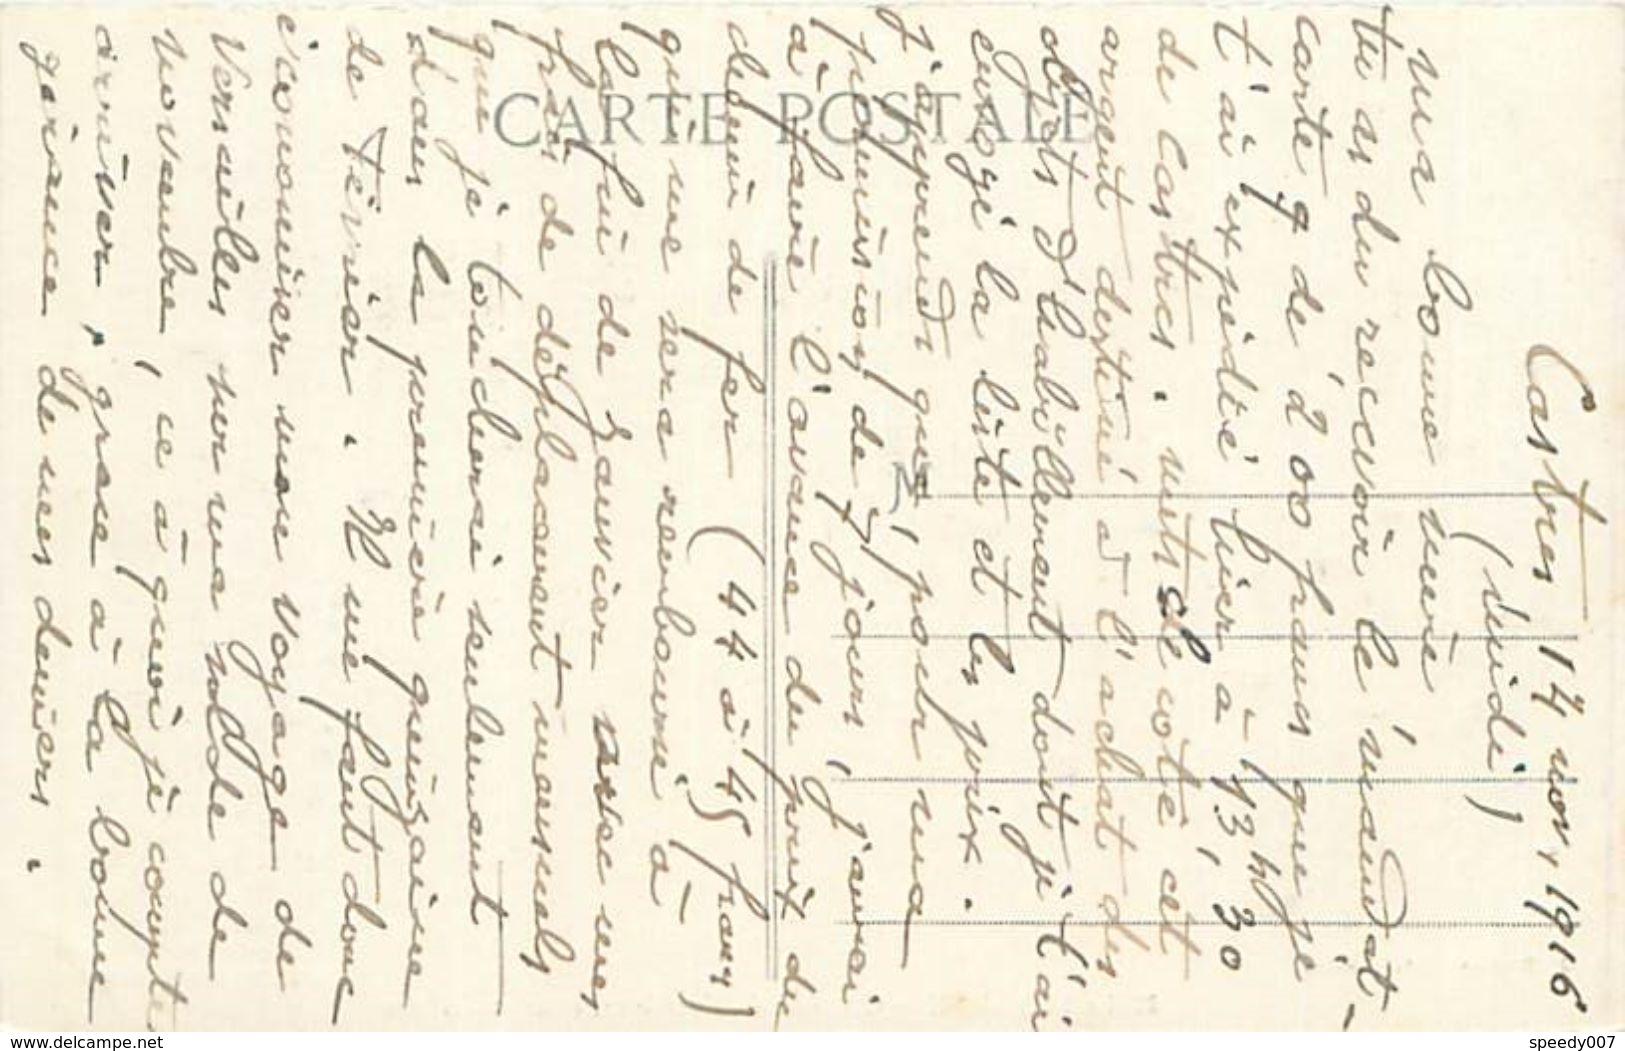 Castres 14 nov, 1916
(midi)
Ma bonne mère
tu as du recevoir le mandat-
carte g de 200 francs que je
t'ai expédié hier à 13h,30
de Castres. Mets de côté cet
argent destiné à l'achat des
objets d'habillement dont je t'ai
envoyé la liste et les prix.
j'apprends que, pour ma
permission de 7 jours, j'aurai
à faire l'avance du prix du
chemin de fer (44 à 45 francs)
qui me sera remboursé à
la fin de Janvier avec mes
frais de déplacement mensuels
que je toucherai seulement
dans la première quinzaine
de Février. Il me faut donc
économiser mon voyage de
Versailles sur ma solde de
novembre, ce à quoi je compte
arriver, grâce à la bonne
gérance de mes deniers.
CARTE POSTALE
M
www.delcampe.net
speedy007